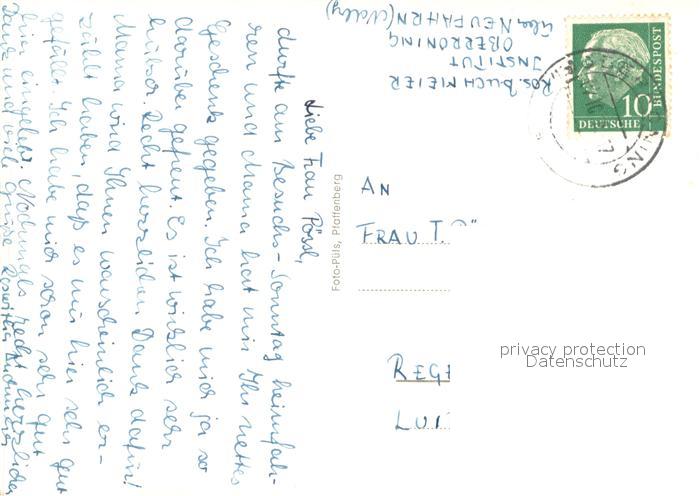 Ros. Buchmeier
Institut
Oberroning
über Neufahrn (Ndby)
BUNDESPOST
10
DEUTSCHE
An
Frau T.
Rege
Lui
Foto-Püls, Pfaffenberg
privacy protection
Datenschutz
Liebe Frau Pössl,
durfte am Besuchs-Sonntag heimfah-
ren und Mama hat mir Ihr nettes
Geschenk gegeben. Ich habe mich ja so
darüber gefreut. Es ist wirklich sehr
hübsch. Recht herzlichen Dank dafür!
Mama wird Ihnen warscheinlich er-
zählt haben, daß es mir hier sehr gut
gefällt. Ich habe mich schon sehr gut
hier eingelebt. Nochmals recht herzlichen
Dank und viele Grüße Roswitha Buchmeier